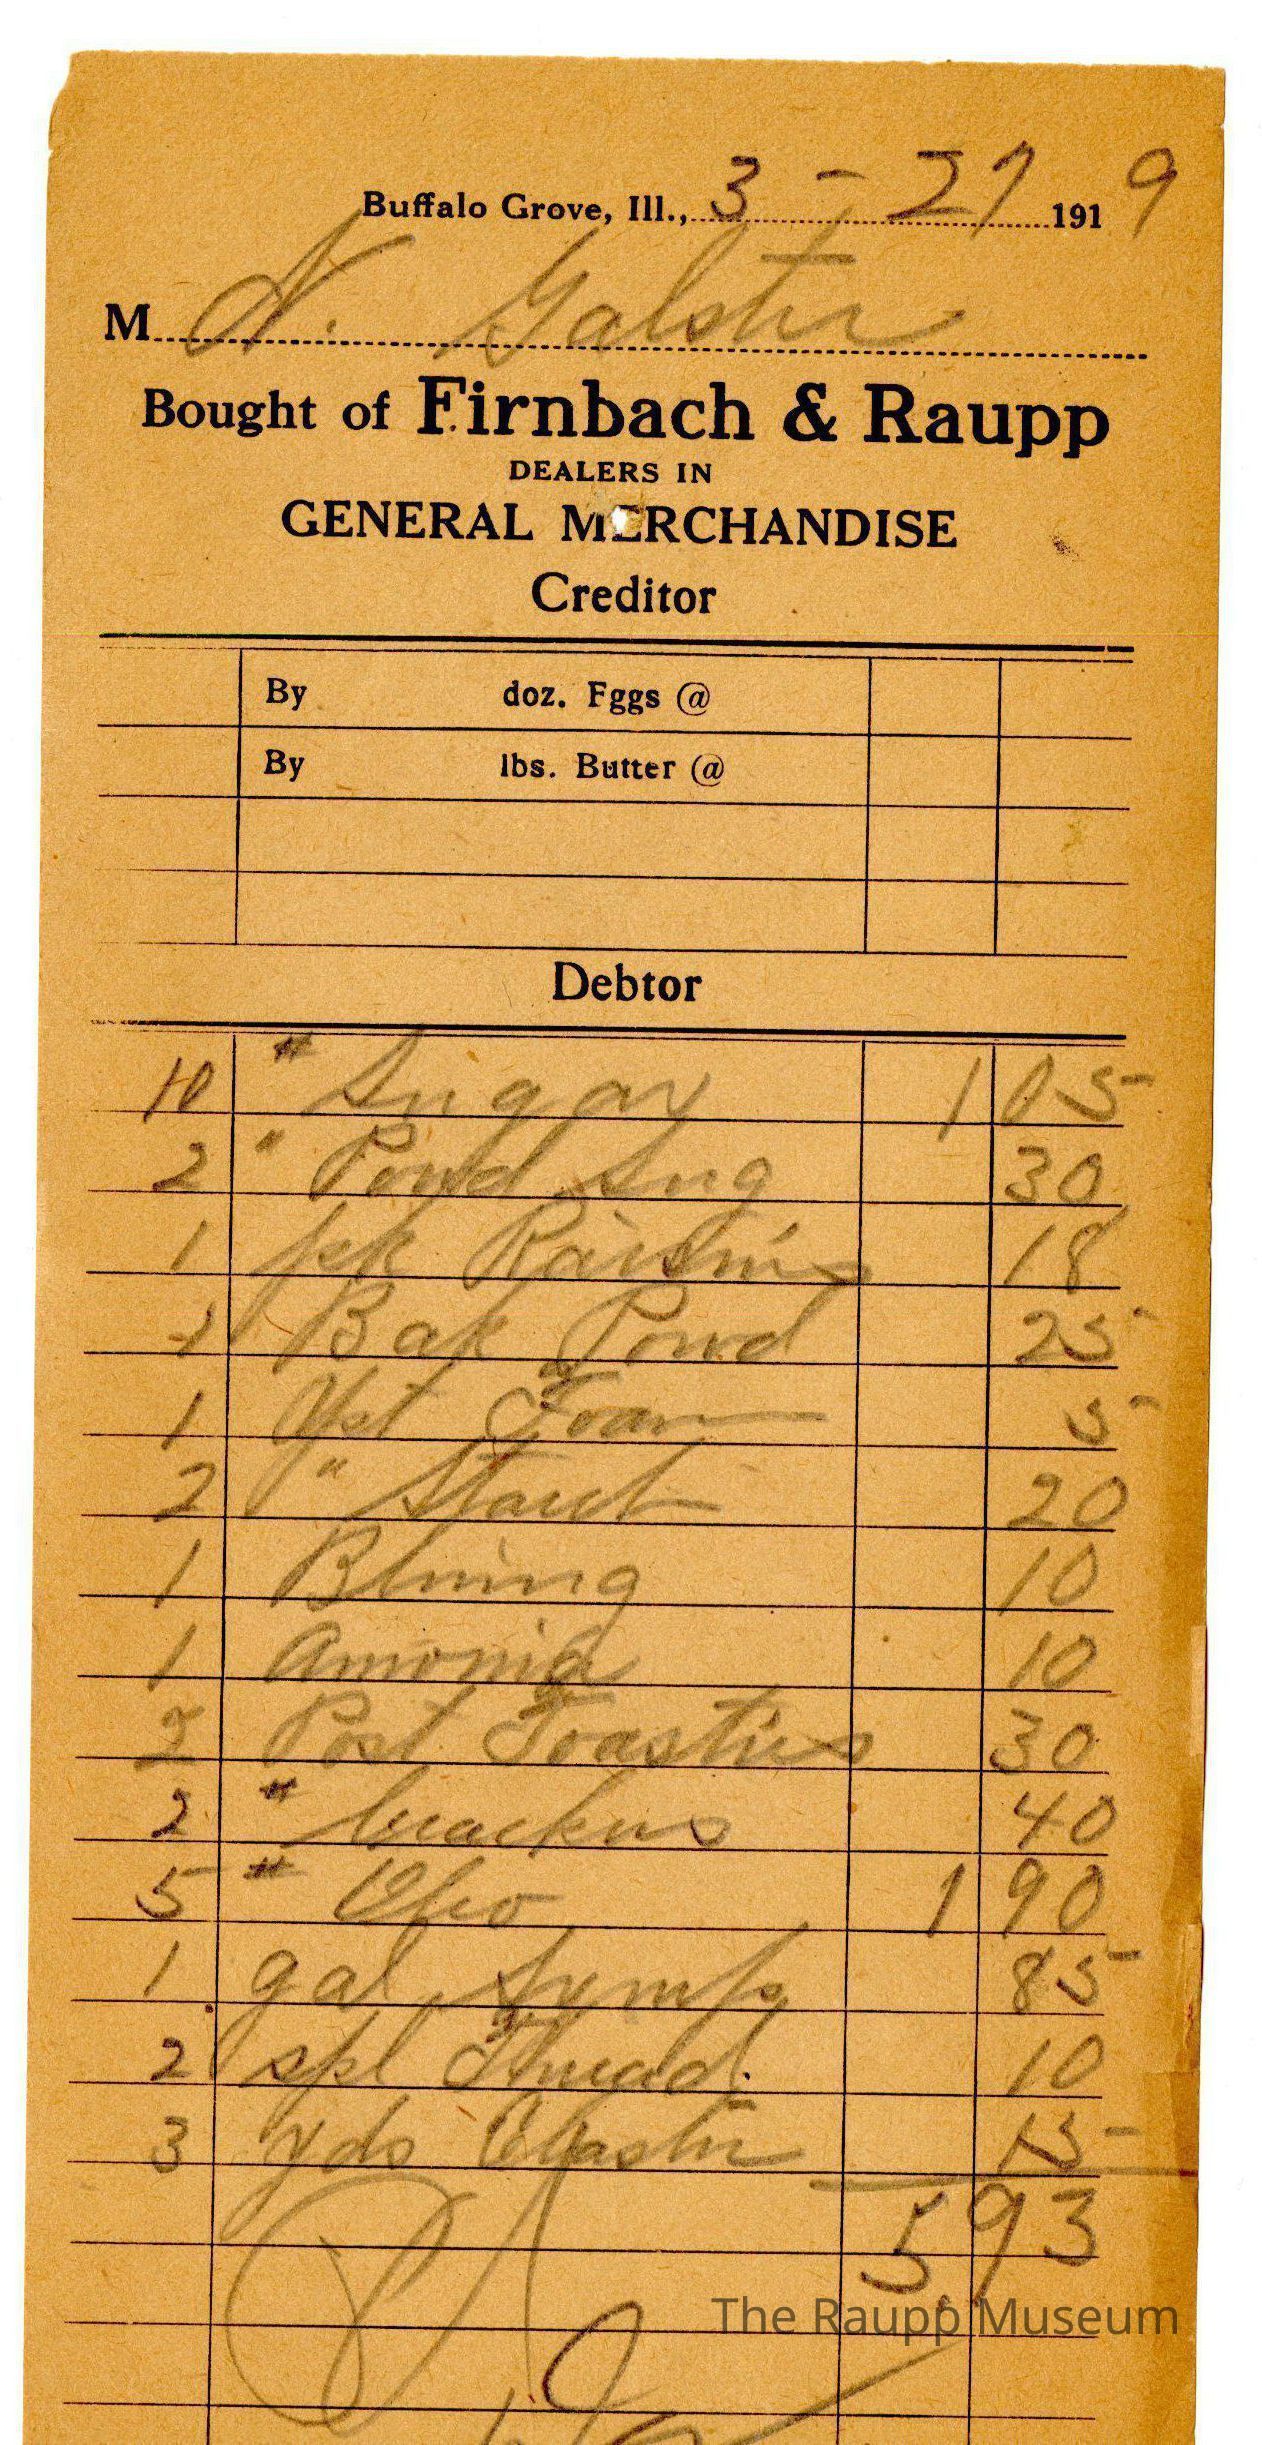 Buffalo Grove, Ill., 3 - 27 1919
M N. Galster
Bought of Firnbach & Raupp
DEALERS IN
GENERAL MERCHANDISE
Creditor
By doz. Fggs @
By lbs. Butter @
Debtor
10 # Sugar 1 05
2 " Powd Sug 30
1 pk Raisins 18
1 Bak Powd 25
1 Yst Foam 5
2 " Starch 20
1 Bluing 10
1 Amonia 10
2 Post Toasties 30
2 # Crackers 40
5 # 1 90
1 gal Syrup 85
2 spl Thread. 10
3 yds Elastic 15
5.93
The Raupp Museum